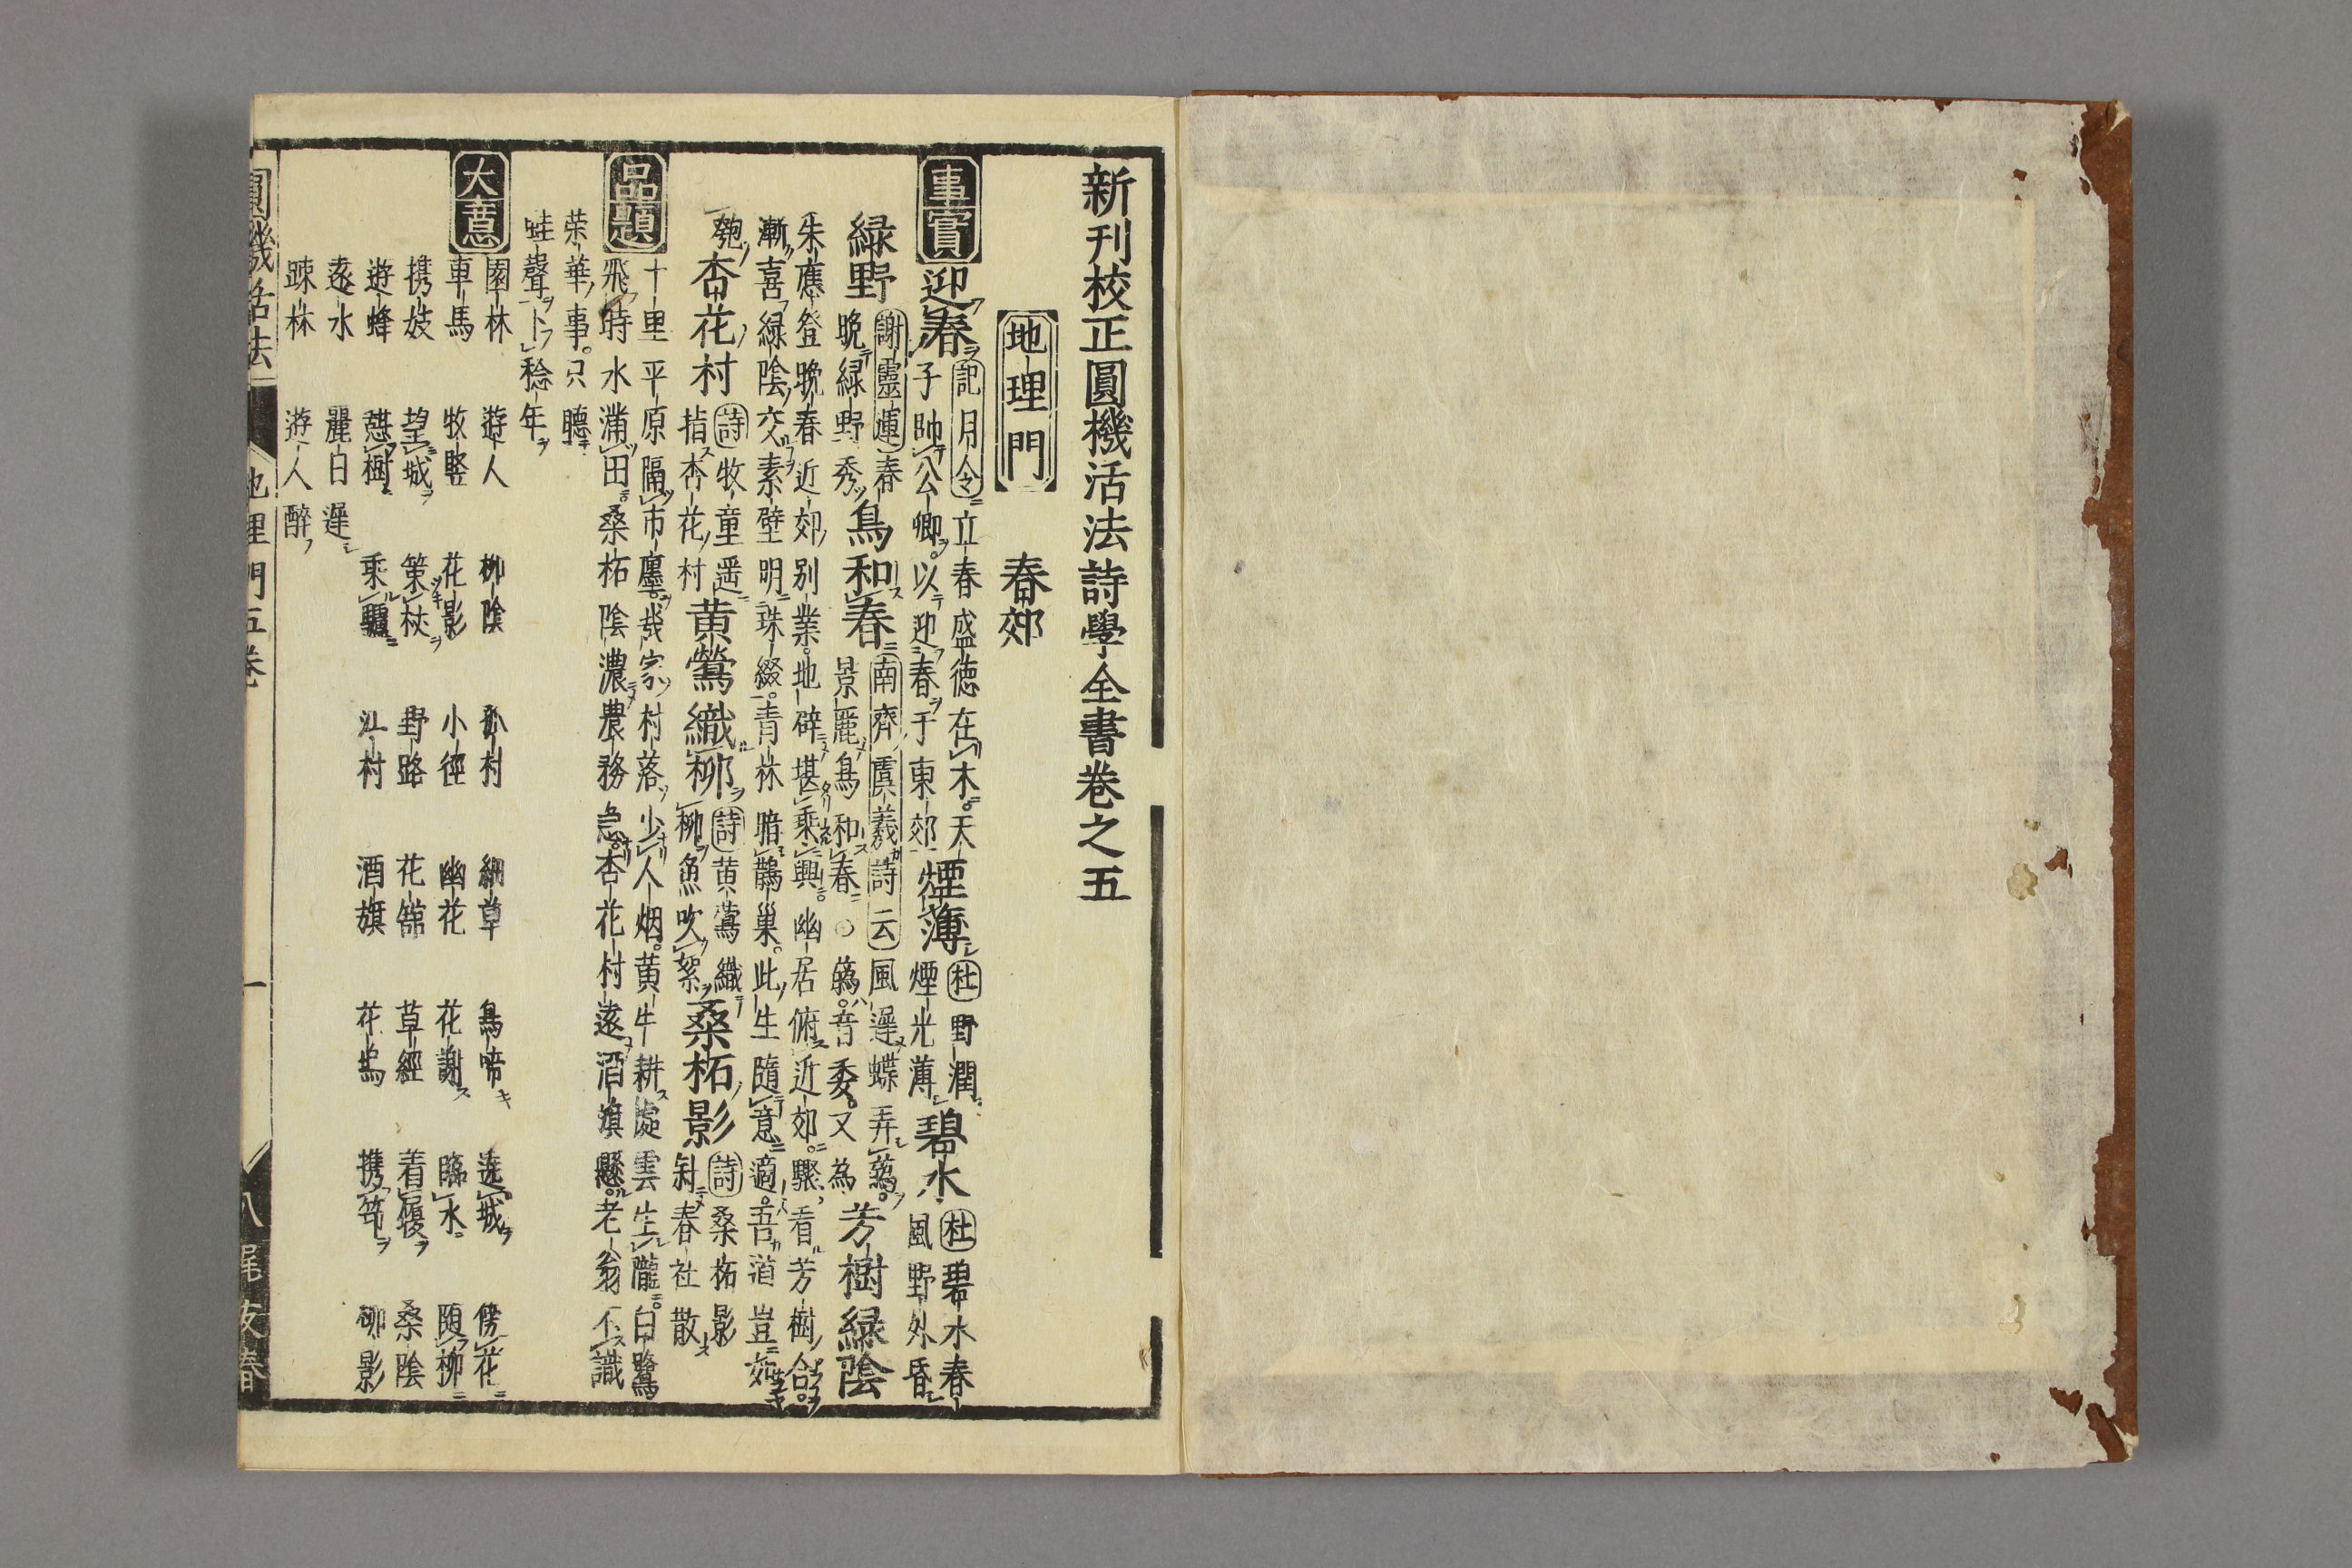 新刊校正圓機活法詩學全書卷之五
地理門
春郊
事實
迎春
記月令立春盛德在木天
子帥公卿以迎春于東郊
煙薄
杜野潤
煙光薄
碧水
杜碧水春
風野外昏
綠野
謝靈運春
晩綠野秀
鳥和春
南齊虞羲詩云風遲蝶弄蘂
景麗鳥和春○蘂音委又為
芳樹綠陰
朱應登晩春近郊別業地僻堪乘興幽居俯近郊驟看芳樹合
漸喜綠陰交素壁明珠綴青林暗鵲巢此生隨意適吾道豈如
匏
杏花村
詩牧童遥
指杏花村
黄鶯織柳
詩黄鶯織
柳魚吹絮
桑柘影
詩桑柘影
斜春社散
品題
十里平原隔市廛幾家村落少人烟黄牛耕處雲生隴白鷺
飛時水滿田桑柘陰濃農務急杏花村遠酒旗懸老翁不識
榮華事只聽
蛙聲卜稔年
大意
園林 遊人 柳陰 孤村 細草 鳥啼 遶城 傍花
車馬 牧竪 花影 小徑 幽花 花謝 臨水 随柳
携妓 望城 策杖 野路 花舘 草經 着屐 桑陰
遊蜂 憩樹 乘驢 江村 酒旗 花塢 携筇 柳影
遠水 麗日遲
踈林 遊人醉
圓機活法 地理門五卷 一 八尾友春